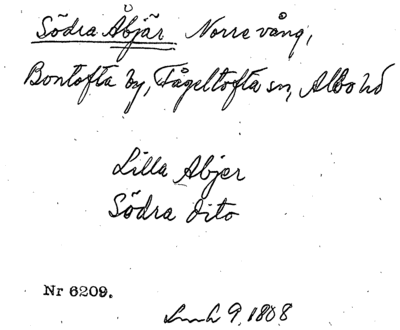 Södra Åbjär Norre vång,
Bontofta by, Fågeltofta sn, Albo hd
Lilla Abjer
Södra dito
Nr 6209.
9, 1808